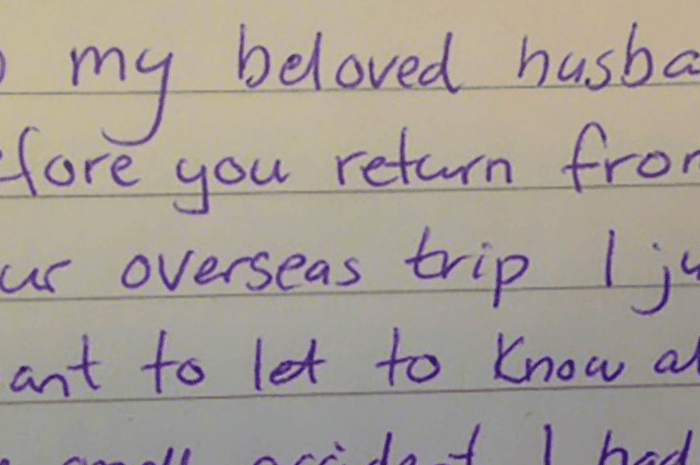 o my beloved husba
efore you return from
ur overseas trip I ju
ant to let to know a
small accident I had